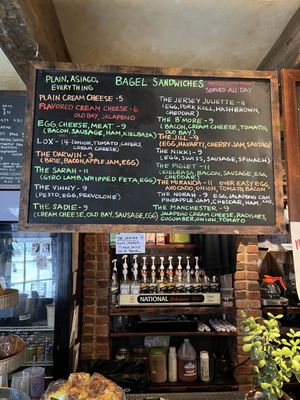 PLAIN, ASIAGO,
EVERYTHING
BAGEL SANDWICHES
SERVED ALL DAY
PLAIN CREAM CHEESE - 5
FLAVORED CREAM CHEESE - 6
OLD BAY, JALAPENO
EGG, CHEESE, MEAT - 9
(BACON, SAUSAGE, HAM, KIELBASA)
LOX - 14 (ONION, TOMATO, CAPERS,
CREAM CHEESE)
THE DARWIN - 9
(BRIE, BACON, APPLE JAM, EGG)
THE SARAH - 11
(GYRO LAMB, WHIPPED FETA, EGG)
THE VINNY - 9
(PESTO, EGG, PROVOLONE)
THE SADIE - 9
(CREAM CHEESE, OLD BAY, SAUSAGE, EGG)
THE JERSEY JULIETTE - 11
(EGG, PORK ROLL, HASHBROWN,
CHEDDAR)
THE B MORE - 9
(BACON, CREAM CHEESE, TOMATO,
OLD BAY)
THE JILL - 9
(EGG, HAVARTI, CHERRY JAM, SAUSAGE)
THE NIKKI - 9
(EGG, SWISS, SAUSAGE, SPINACH)
THE PIGLET - 11
(KIELBASA, BACON, SAUSAGE, EGG,
CHEDDAR)
THE MIRANDA - 11 OVER EASY EGG,
AVOCADO, ONION, TOMATO, BACON
THE NORAH - 9 EGG, JALAPENO CM,
PINEAPPLE JAM, CHEDDAR, HAM
THE MANCHESTER - 9
JALAPENO CREAM CHEESE, RADISHES,
CUCUMBER, ONION, TOMATO
NATIONAL